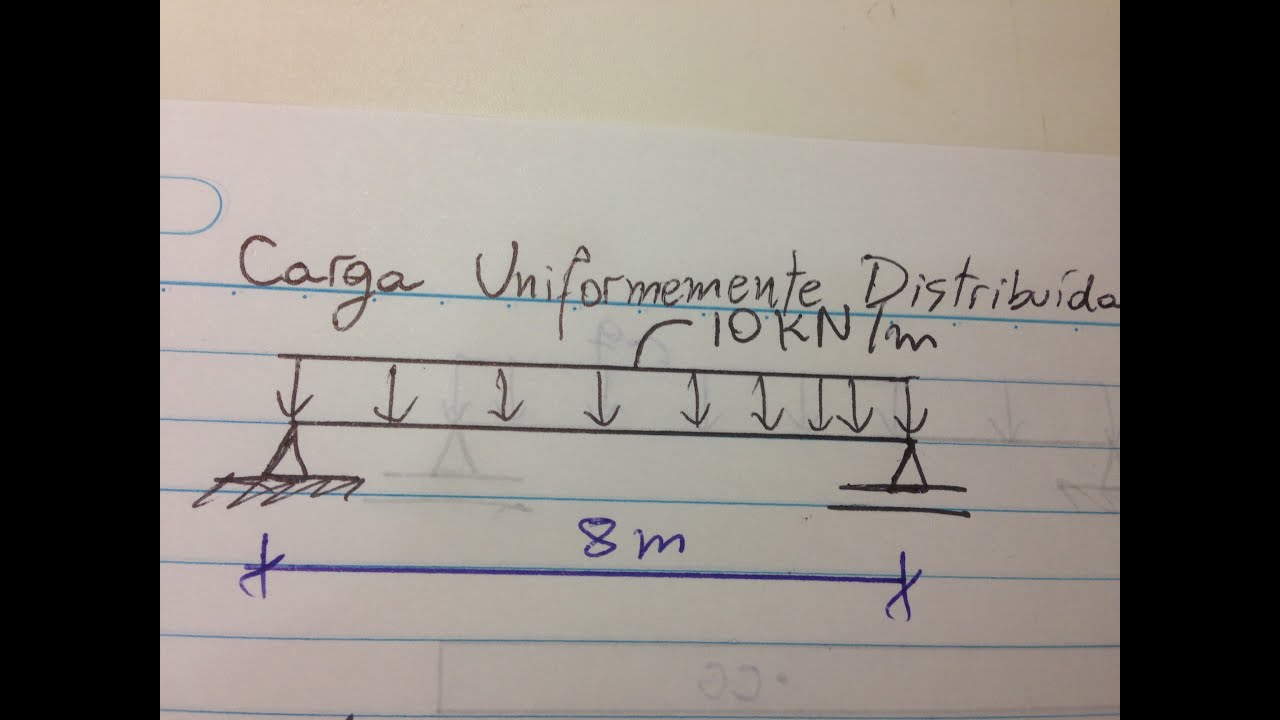 Carga Uniformemente Distribuída
10 kN/m
8 m
• CG